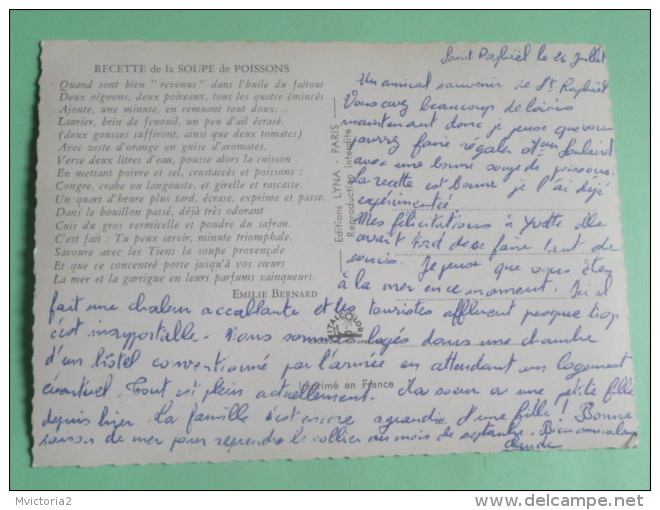 RECETTE de la SOUPE de POISSONS
Quand sont bien "revenus" dans l'huile du faitout
Deux oignons, deux poireaux, tous les quatre émincés
Ajoute, une minute, en remuant tout doux,
Laurier, brin de fenouil, un peu d'ail écrasé.
(deux gousses suffiront, ainsi que deux tomates)
Avec zeste d'orange en guise d'aromates.
Verse deux litres d'eau, pousse alors la cuisson
En mettant poivre et sel, crustaccés et poissons :
Congre, crabe ou langouste, et girelle et rascasse.
Un quart d'heure plus tard, écrase, exprime et passe.
Dans le bouillon passé, déjà très odorant
Cuis du gros vermicelle et poudre du safran.
C'est fait : Tu peux servir, minute triomphale.
Savoure avec les Tiens la soupe provençale
Et que ce concentré porte jusqu'à vos cœurs
La mer et la garrigue en leurs parfums vainqueurs.
EMILIE BERNARD
Editions LYNA - PARIS
Reproduction interdite
Imprimé en France
Saint Raphaël le 26 Juillet
Un amical souvenir de St Raphaël
Vous avez beaucoup de loisirs
maintenant donc je pense que vous
pourrez faire régaler
avec une bonne soupe de poissons.
La recette est bonne je l'ai déjà
expérimentée
Mes félicitations à Yvette elle
avait tord de se faire tant de
soucis. Je pense que vous êtes
à la mer en ce moment. Ici il
fait une chaleur accablante et les touristes affluent presque trop
c'est insupportable. Nous sommes logés dans une chambre
d'un hôtel conventionné par l'armée en attendant un logement
éventuel. Tout est plein actuellement. Ta soeur a une petite fille
depuis hier. La famille s'est encore agrandie d'une fille ! Bonne
saison de mer pour reprendre le collier au mois de septembre. Bien
Claude
Mvictoria2